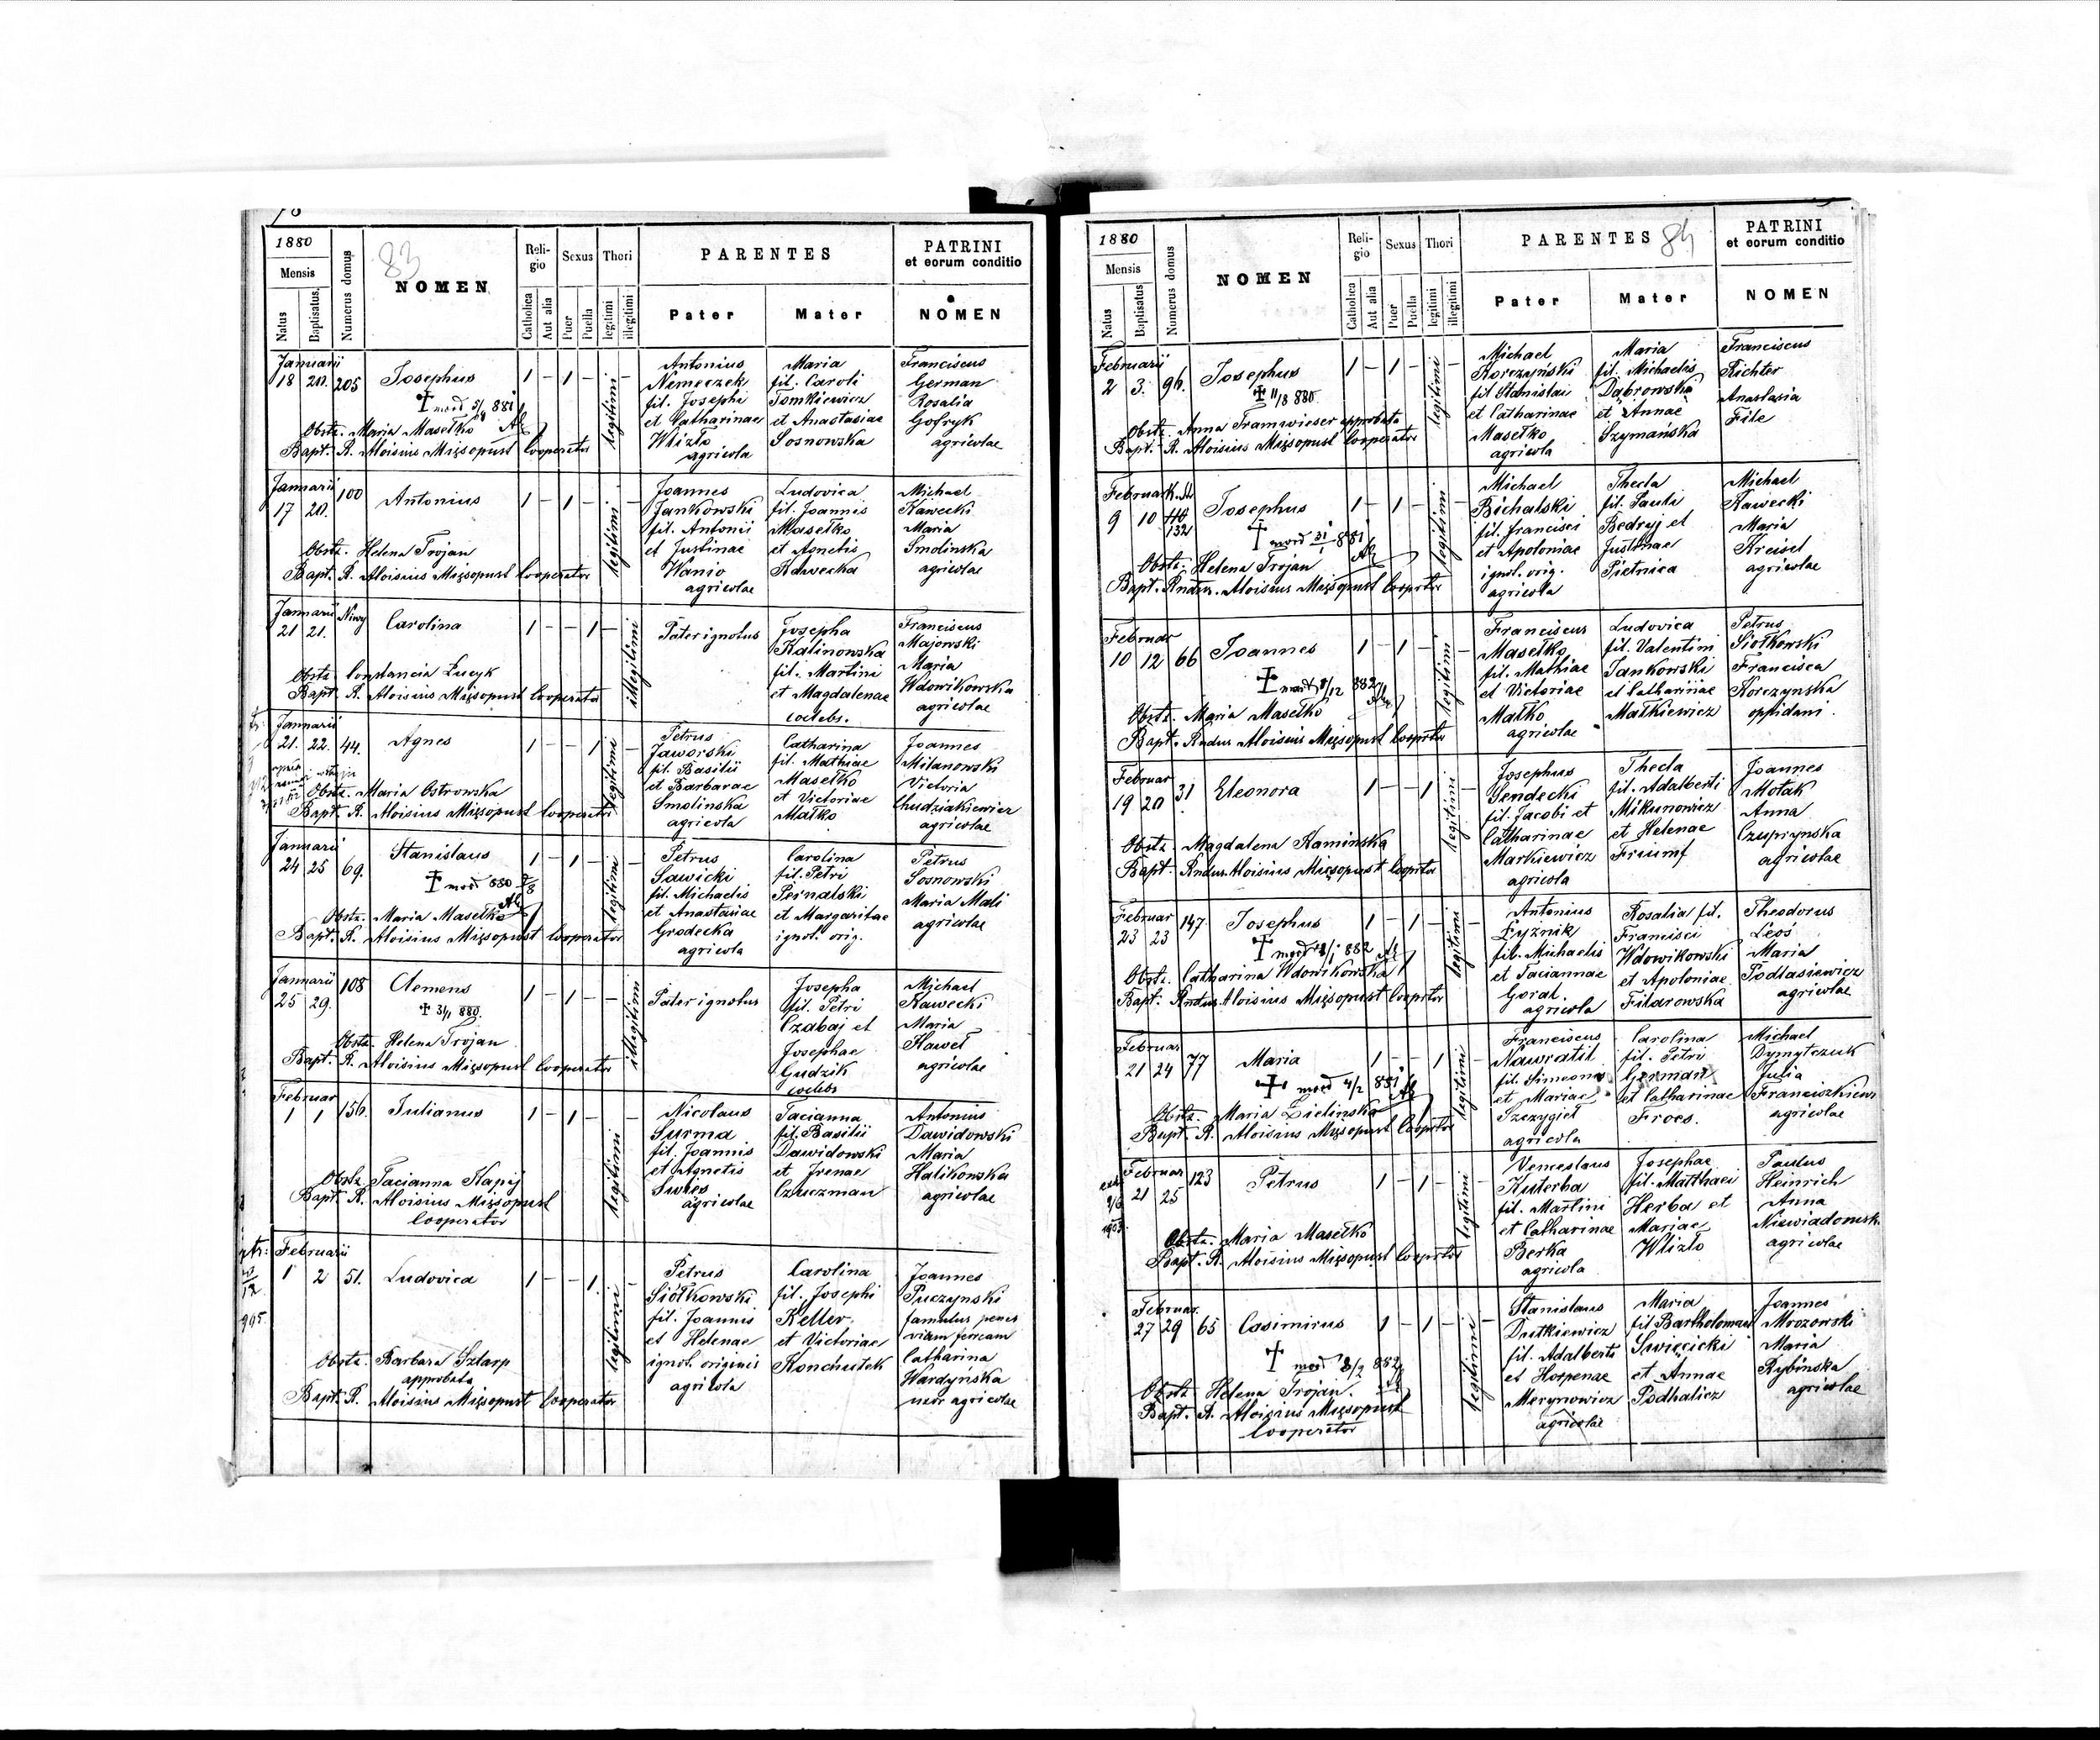 83
1880
Mensis
Natus
Baptisatus
Numerus domus
NOMEN
Reli-
gio
Catholica
Aut alia
Sexus
Puer
Puella
Thori
legitimi
illegitimi
PARENTES
Pater
Mater
PATRINI
et eorum conditio
NOMEN
Januarii
18 20. 205 Josephus 1 - 1 - legitimi -
† mort 5/4 881
Obstz. Maria Masełko
Bapt. R. Aloisius Mięsopust Cooperator
Antonius
Nemeczek
fil. Josephi
et Catharinae
Wlizło
agricola
Maria
fil. Caroli
Tomkiewicz
et Anastasiae
Sosnowska
Franciscus
German
Rosalia
Gofryk
agricolae
Januarii
17 20. 100 Antonius 1 - 1 - legitimi -
Obstz. Helena Trojan
Bapt. R. Aloisius Mięsopust Cooperator
Joannes
Jankowski
fil. Antonii
et Justinae
Wanio
agricolae
Ludovica
fil. Joannis
Masełko
et Agnetis
Kawecka
Michael
Kawecki
Maria
Smolinska
agricolae
Januarii
21 21. Niwy Carolina 1 - - 1 - illegitimi
Obstz. Constancia Łucyk
Bapt. R. Aloisius Mięsopust Cooperator
Pater ignotus
Josepha
Kalinowska
fil. Martini
et Magdalenae
coelebs.
Franciscus
Majowski
Maria
Wdowikowska
agricolae
Januarii
21. 22. 44. Agnes 1 - - 1 legitimi -
Obstz. Maria Ostrowska
Bapt. R. Aloisius Mięsopust Cooperator
Petrus
Jaworski
fil. Basilii
et Barbarae
Smolinska
agricola
Catharina
fil. Mathiae
Masełko
et Victoriae
Małko
Joannes
Milanowski
Victoria
Chudziakiewicz
agricolae
Januarii
24 25 69. Stanislaus 1 - 1 - legitimi -
† mort 880
Obstz. Maria Masełko
Bapt. R. Aloisius Mięsopust Cooperator
Petrus
Sawicki
fil. Michaelis
et Anastasiae
Grodecka
agricola
Carolina
fil. Petri
Pernalski
et Margaritae
ignot. orig.
Petrus
Sosnowski
Maria Mali
agricolae
Januarii
25 29. 108 Clemens 1 - 1 - - illegitimi
† 31/1 880.
Obstz. Helena Trojan
Bapt. R. Aloisius Mięsopust Cooperator
Pater ignotus
Josepha
fil. Petri
Czabaj et
Josephae
Gudzik
coelebs
Michael
Kawecki
Maria
Haweł
agricolae
Februar
1 1 156. Julianus 1 - 1 - legitimi -
Obstz. Tacianna Kapij
Bapt. R. Aloisius Mięsopust
Cooperator
Nicolaus
Surma
fil. Joannis
et Agnetis
agricolae
Tacianna
fil. Basilii
Dawidowski
et Irenae
Czuczman
Antonius
Dawidowski
Maria
Halikowska
agricolae
Februarii
1 2 51. Ludovica 1 - - 1. legitimi -
Obstz. Barbara Sztarp
approbata
Bapt. R. Aloisius Mięsopust Cooperator
Petrus
Siółkowski
fil. Joannis
et Helenae
ignot. originis
agricola
Carolina
fil. Josephi
Keller
et Victoriae
Konchutek
Joannes
Puczynski
famulus penes
viam ferream
Catharina
Wardyńska
uxor agricolae
84
1880
Mensis
Natus
Baptisatus
Numerus domus
NOMEN
Reli-
gio
Catholica
Aut alia
Sexus
Puer
Puella
Thori
legitimi
illegitimi
PARENTES
Pater
Mater
PATRINI
et eorum conditio
NOMEN
Februarii
2 3. 96. Josephus 1 - 1 - legitimi -
† 11/8 880
Obstz. Anna Tramwieser approbata
Bapt. R. Aloisius Mięsopust Cooperator
Michael
Korczyński
fil Stanislai
et Catharinae
Masełko
agricola
Maria
fil. Michaelis
Dąbrowska
et Annae
Szymańska
Franciscus
Richter
Anastasia
File
Februar
9 10 132 Josephus 1 - 1 - legitimi -
† mort 31/1 881
Obstz. Helena Trojan
Bapt. Rndus. Aloisius Mięsopust Cooprtor
Michael
Bichalski
fil. Francisci
et Apoloniae
ignot. orig.
agricola
Thecla
fil. Pauli
Bedryj et
Justinae
Pietnica
Michael
Kawecki
Maria
Kreisel
agricolae
Februar
10 12 66 Joannes 1 - 1 - legitimi -
† mort 8/12 882
Obstz. Maria Masełko
Bapt. Rndus Aloisius Mięsopust Cooprtor
Franciscus
Masełko
fil. Mathiae
et Victoriae
Małko
agricolae
Ludovica
fil. Valentini
Jankowski
et Catharinae
Małkiewicz
Petrus
Siołkowski
Francisca
Korczynska
oppidani.
Februar
19 20 31 Eleonora 1 - - 1 legitimi -
Obstz. Magdalena Kaminska
Bapt. Rndus Aloisius Mięsopust Cooprtor
Josephus
Sendecki
fil. Jacobi et
Catharinae
Markiewicz
agricola
Thecla
fil. Adalberti
Mikunowicz
et Helenae
Friumf
Joannes
Motak
Anna
Czuprynska
agricolae
Februar
23 23 147 Josephus 1 - 1 - legitimi -
† mort 8/1 882
Obstz. Catharina Wdowikowska
Bapt. Rndus. Aloisius Mięsopust Cooprtor
Antonius
Łyźnik
fil. Michaelis
et Taciannae
Goral.
agricola
Rosalia fil.
Francisci
Wdowikowski
et Apoloniae
Filarowska
Theodorus
Łeoś
Maria
Podlasiewicz
agricolae
Februar
21 24 77 Maria 1 - - 1 legitimi -
† mort 4/2 881
Obstz. Maria Zielinska
Bapt. R. Aloisius Mięsopust Cooprtor
Franciscus
Nawratil
fil. Simeonis
et Mariae
Szczygieł
agricola
Carolina
fil. Petri
German
et Catharinae
Froes.
Michael
Dymytczuk
Julia
Franciszkiewicz
agricolae
Februar
21 25 123 Petrus 1 - 1 - legitimi -
Obstz. Maria Masełko
Bapt. R. Aloisius Mięsopust Cooprtor
Venceslaus
Kuterba
fil. Martini
et Catharinae
Berka
agricola
Josephae
fil. Matthaei
Herba et
Mariae
Wlizło
Paulus
Heinrich
Anna
Niewiadomsk.
agricolae
Februar.
27 29 65 Casimirus 1 - 1 - legitimi -
† mort 8/2 882
Obstz. Helena Trojan.
Bapt. R. Aloisius Mięsopust
Cooperator
Stanislaus
Dutkiewicz
fil. Adalberti
et Hospenae
Merynowicz
agricolae
Maria
fil Bartholomaei
Swięcicki
et Annae
Podhalicz
Joannes
Mrozowski
Maria
Rybińska
agricolae